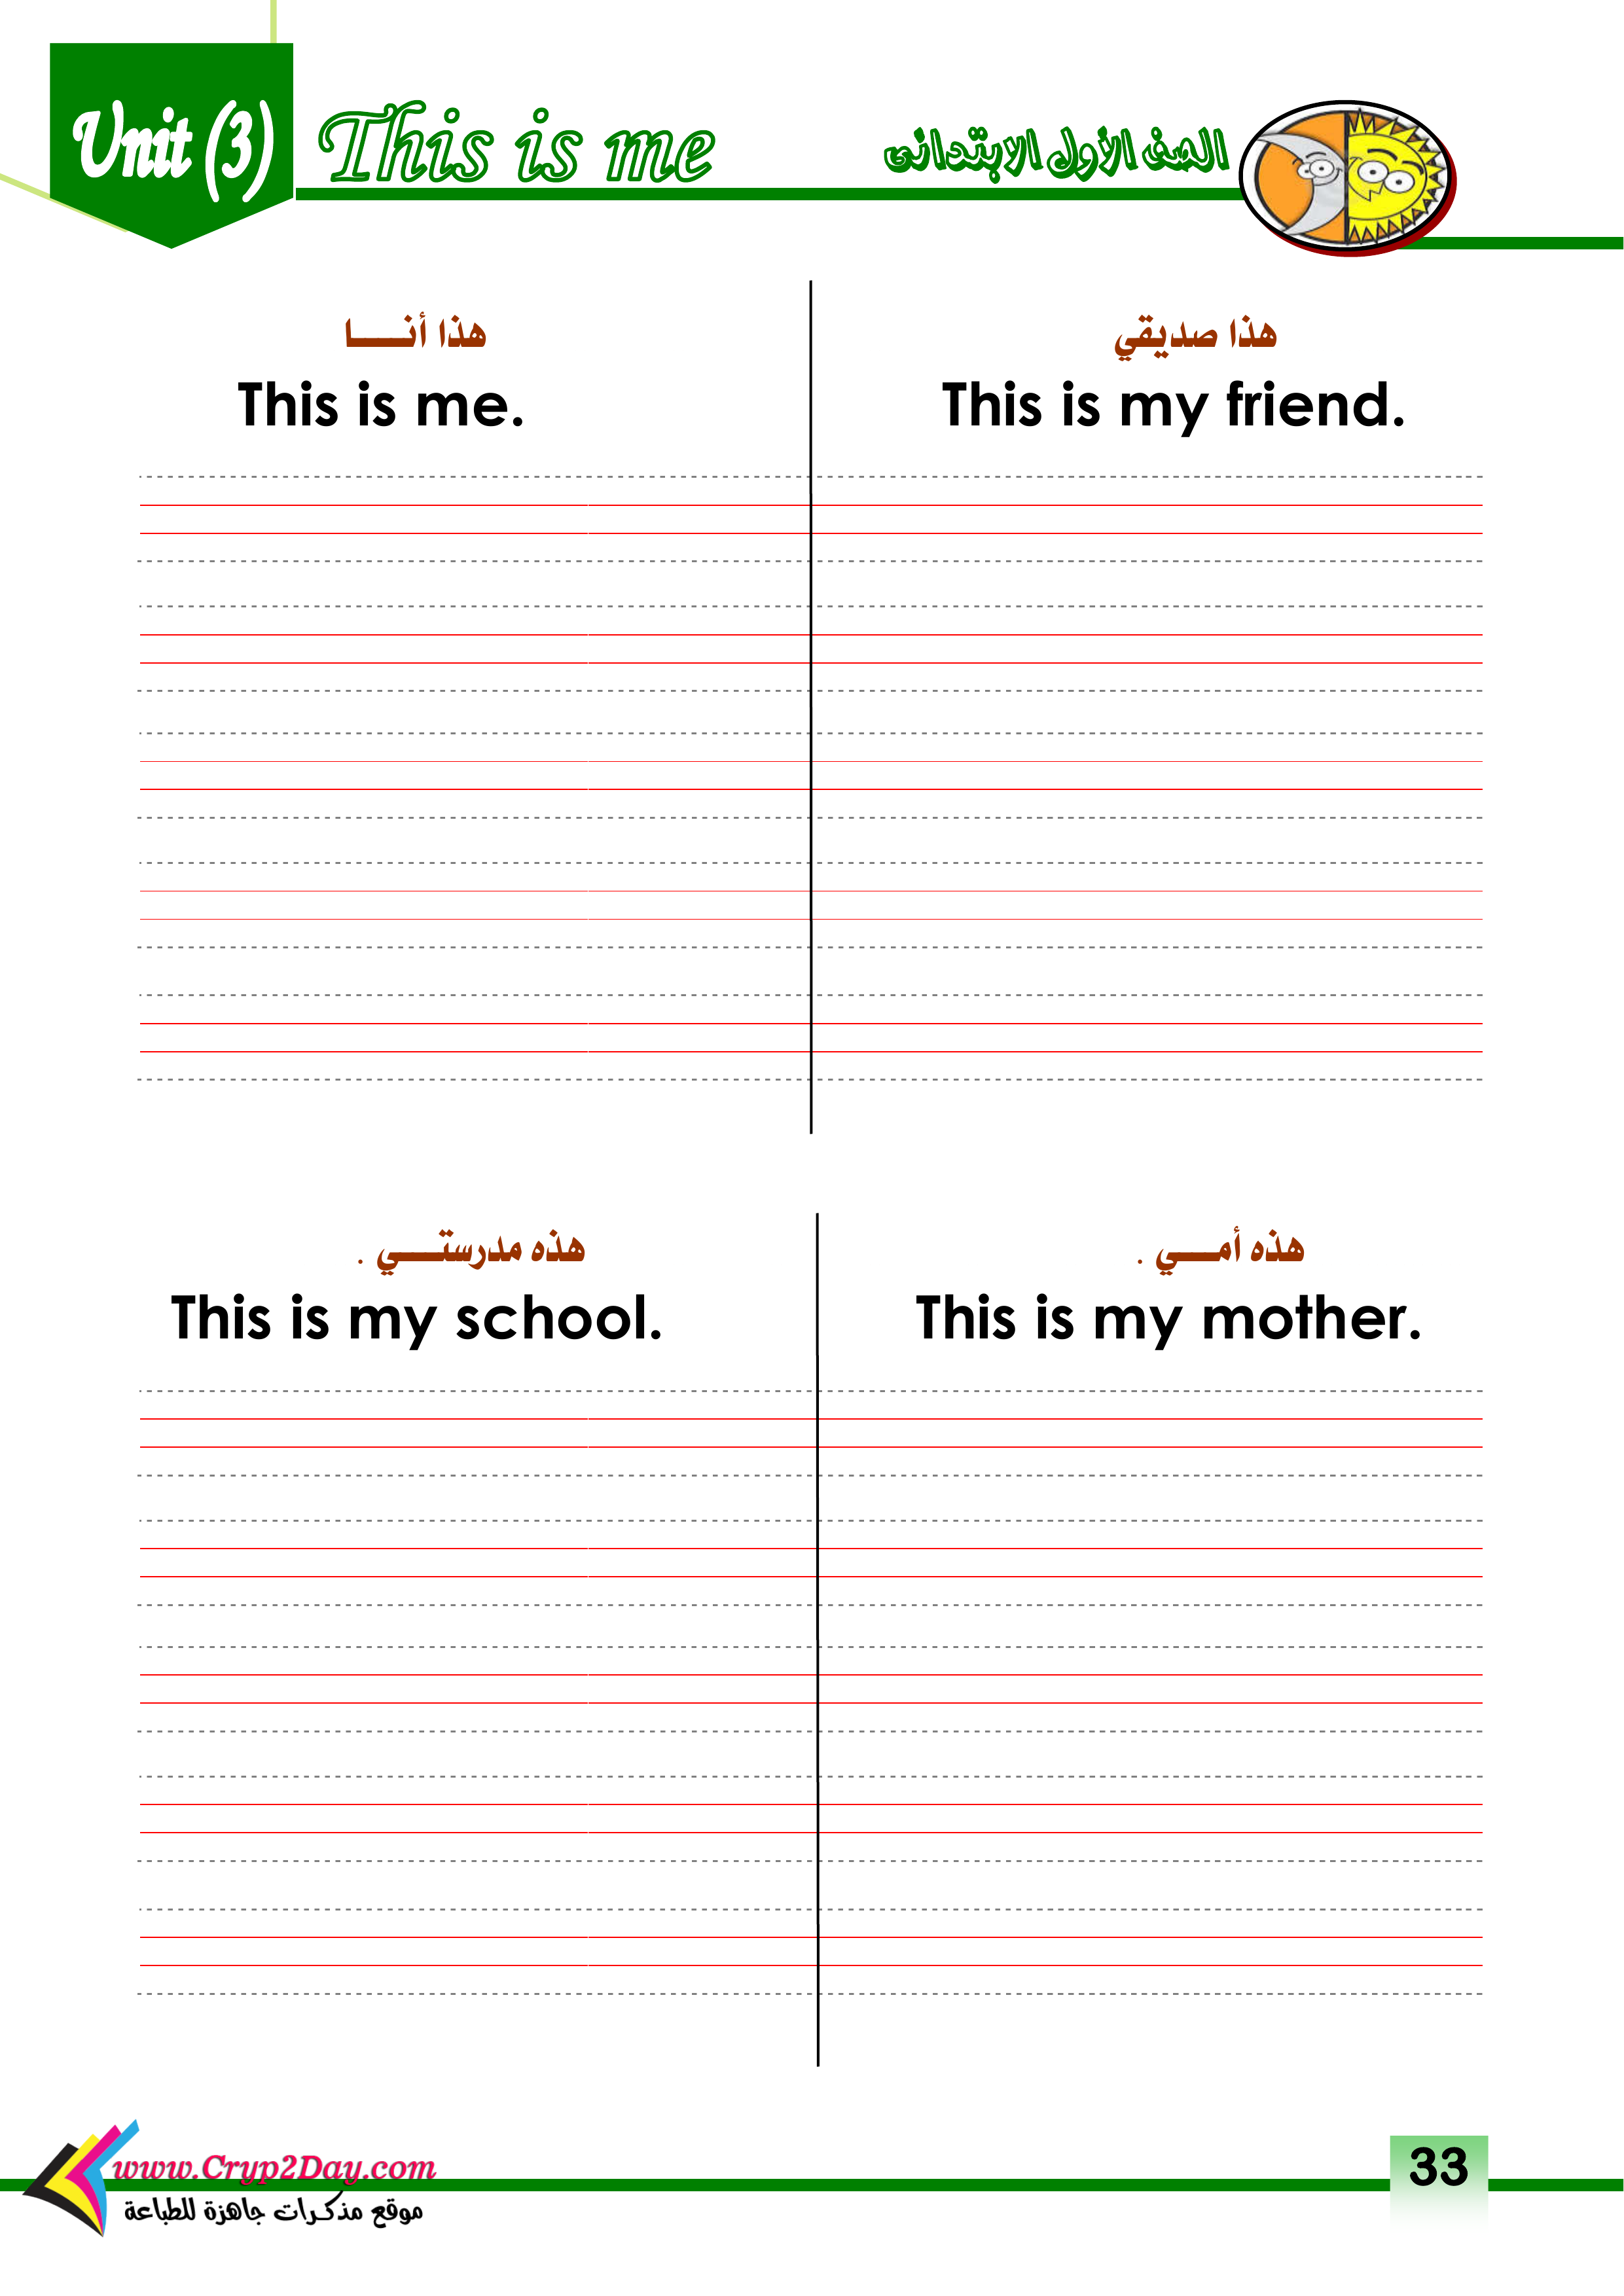 Unit (3)
This is me
الصف الأول الابتدائى
هذا أنـــــا
This is me.
هذا صديقي
This is my friend.
هذه مدرستـــــي .
This is my school.
هذه أمـــــي .
This is my mother.
www.Cryp2Day.com
موقع مذكرات جاهزة للطباعة
33